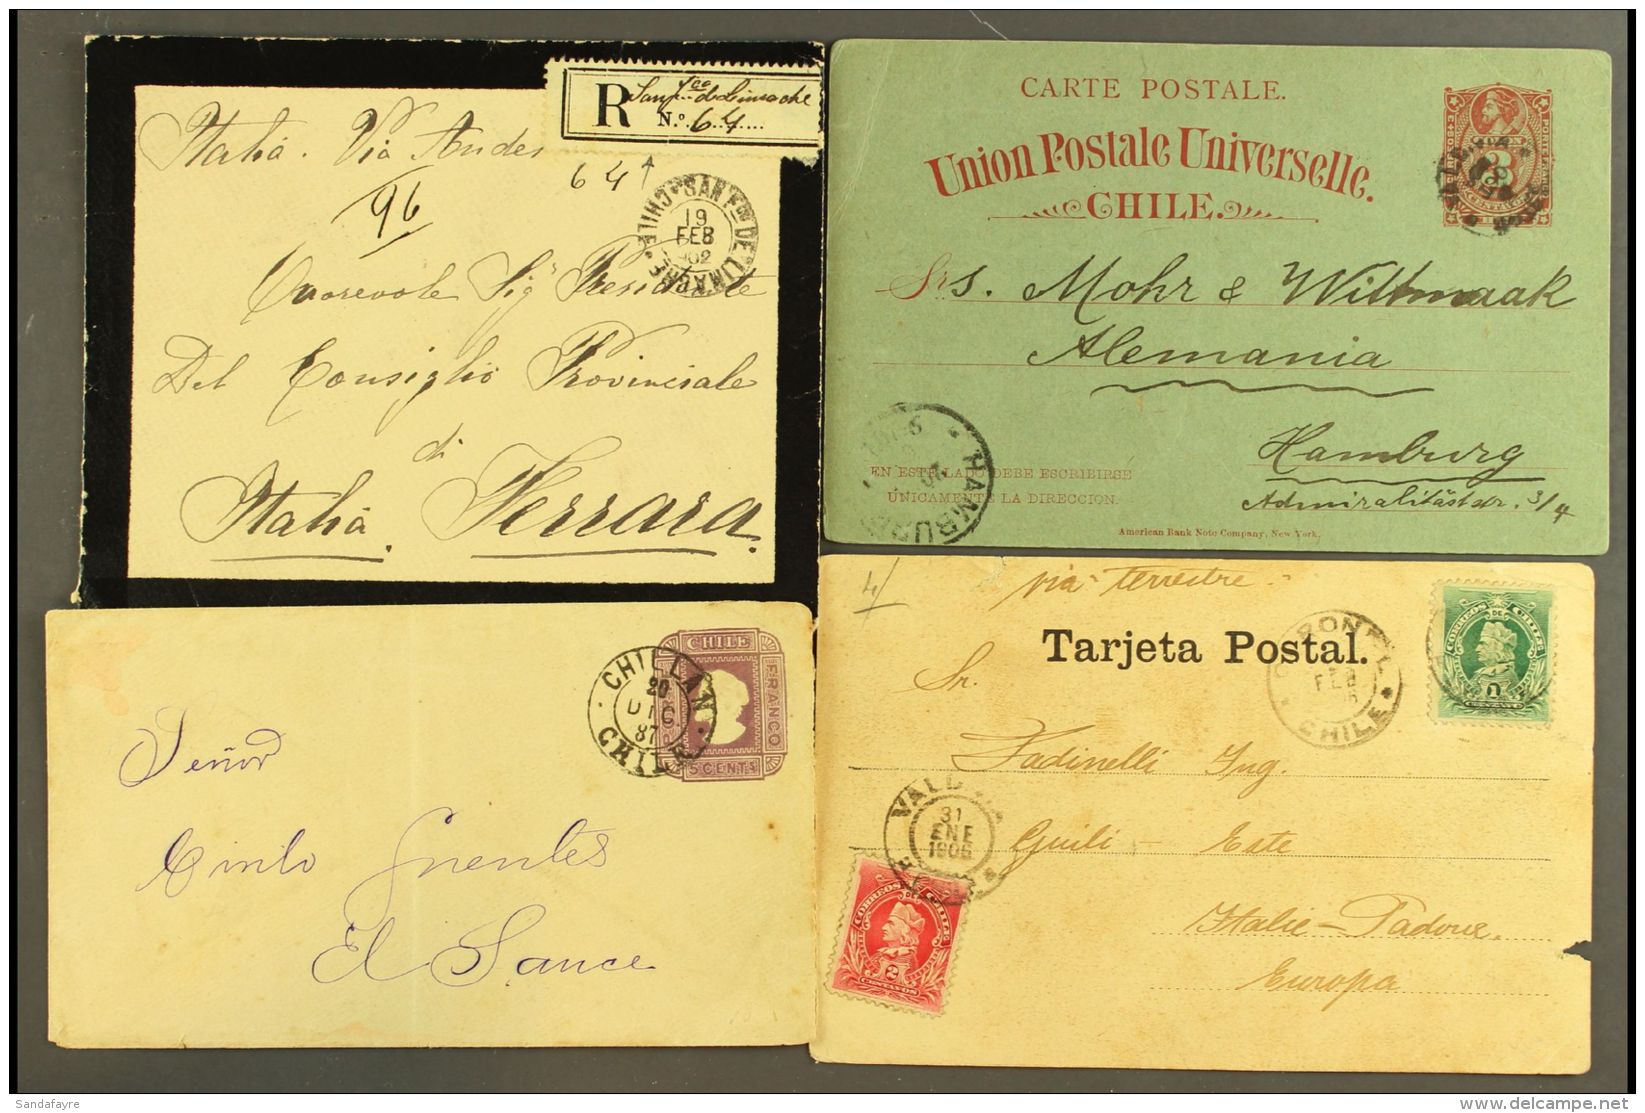 R
N.º 64
Italia. Via Andes
64
96
SAN F.CO DE LIMACHE
CHILE
19
FEB
902
Onorevole Sig.r Presidente
Del Consiglio Provinciale
di
Italia. Ferrara.
CARTE POSTALE.
Union Postale Universelle.
CHILE.
3
Srs. Mohr & Wittmaak
Alemania
Hamburg
Admiralitätstr. 3/4
HAMBURG
EN ESTE LADO DEBE ESCRIBIRSE
ÚNICAMENTE LA DIRECCION.
American Bank Note Company, New York.
CHILE
FRANCO
5 CENTS
CHILLAN
20
DIC
87
CHILE
Señor
Cinto Fuentes
El Sauce
4/
via terrestre
Tarjeta Postal.
CORONEL
FEB
CHILE
CORREOS DE CHILE
1
CENTAVO
Sr.
Fadinelli Ing.
VALDIVIA
31
ENE
1906
Este
Italie - Padoue
Europa
CORREOS DE CHILE
2
CENTAVOS
Sandafayre